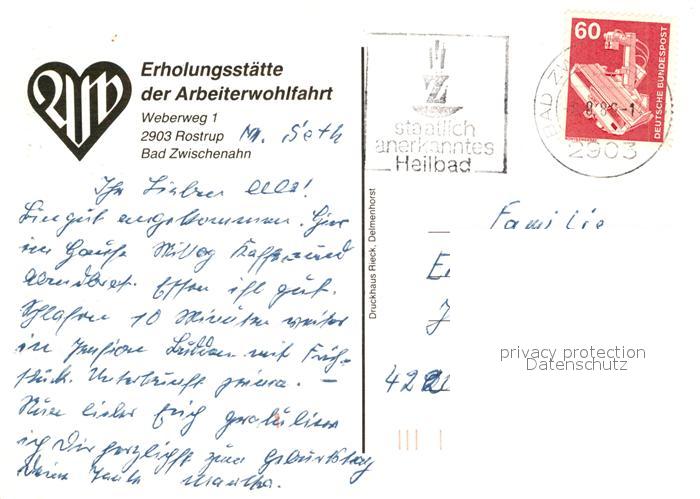 AW
Erholungsstätte
der Arbeiterwohlfahrt
Weberweg 1
2903 Rostrup
Bad Zwischenahn
Ihr Lieben alle!
Bin gut angekommen. Hier
im Hause Mittag Kaffee und
Abendbrot. Essen ist gut.
Schlafen 10 Minuten weiter
in Pension mit Früh-
stück. Unterkunft prima. –
Nun lieber Erich gratuliere
ich Dir herzlichst zum Geburtstag
Deine Tante Martha.
Druckhaus Rieck, Delmenhorst
staatlich
anerkanntes
Heilbad
60
DEUTSCHE BUNDESPOST
BAD ZW
2903
Familie
E
J
422
privacy protection
Datenschutz